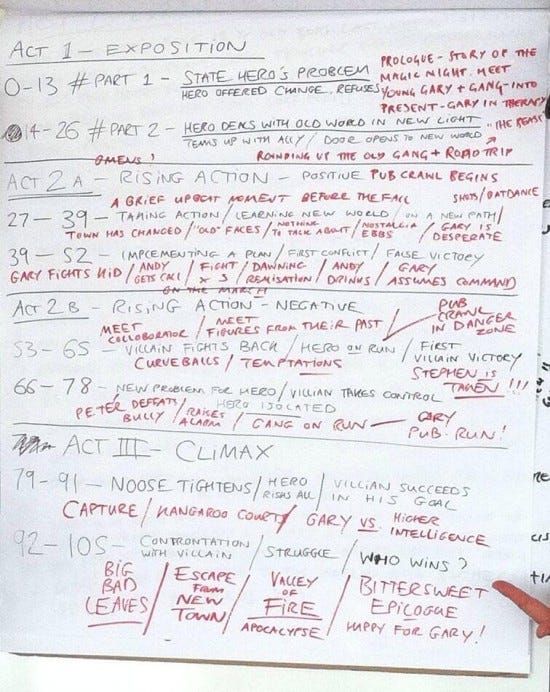 ACT 1 - EXPOSITION
0-13 # PART 1 - STATE HERO'S PROBLEM
HERO OFFERED CHANGE. REFUSES
PROLOGUE - STORY OF THE
MAGIC NIGHT. MEET
YOUNG GARY + GANG - INTO
PRESENT - GARY IN THERAPY
14-26 # PART 2 - HERO DEALS WITH OLD WORLD IN NEW LIGHT
TEAMS UP WITH ALLY / DOOR OPENS TO NEW WORLD
"THE BEAST"
OMENS'
ROUNDING UP THE OLD GANG + ROAD TRIP
ACT 2A - RISING ACTION - POSITIVE PUB CRAWL BEGINS
A BRIEF UPBEAT MOMENT BEFORE THE FALL SHOTS/OATDANCE
27-39 - TAKING ACTION / LEARNING NEW WORLD / ON A NEW PATH /
TOWN HAS CHANGED / "OLD" FACES / NOTHING TO TALK ABOUT / NOSTALGIA EBBS / GARY IS DESPERATE
39-52 - IMPLEMENTING A PLAN / FIRST CONFLICT / FALSE VICTORY
GARY FIGHTS KID / ANDY GETS CALL / FIGHT X 3 / DAWNING REALISATION / ANDY DRINKS / GARY ASSUMES COMMAND
ON THE MARCH
ACT 2B - RISING ACTION - NEGATIVE
MEET COLLOBORATOR / MEET FIGURES FROM THEIR PAST
PUB
CRAWL
IN DANGER
ZONE
53-65 - VILLAIN FIGHTS BACK / HERO ON RUN / FIRST VILLAIN VICTORY
CURVEBALLS / TEMPTATIONS
STEPHEN IS
TAKEN!!!
66-78 - NEW PROBLEM FOR HERO / VILLAN TAKES CONTROL
HERO ISOLATED
PETER DEFEATS BULLY / RAISES ALARM / GANG ON RUN - GARY PUB RUN!
ACT III - CLIMAX
79-91 - NOOSE TIGHTENS / HERO RISKS ALL / VILLIAN SUCCEEDS IN HIS GOAL
CAPTURE / KANGAROO COURT / GARY VS. HIGHER INTELLIGENCE
92-105 - CONFRONTATION WITH VILLAIN / STRUGGLE / WHO WINS?
BIG BAD LEAVES / ESCAPE FROM NEW TOWN / VALLEY OF FIRE APOCALYPSE / BITTERSWEET EPILOGUE HAPPY FOR GARY!